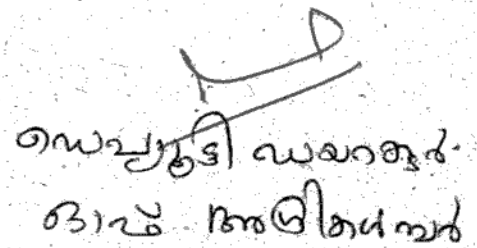 ഡെപ്യൂട്ടി ഡയറക്ടർ
ഓഫ് അഗ്രികൾച്ചർ